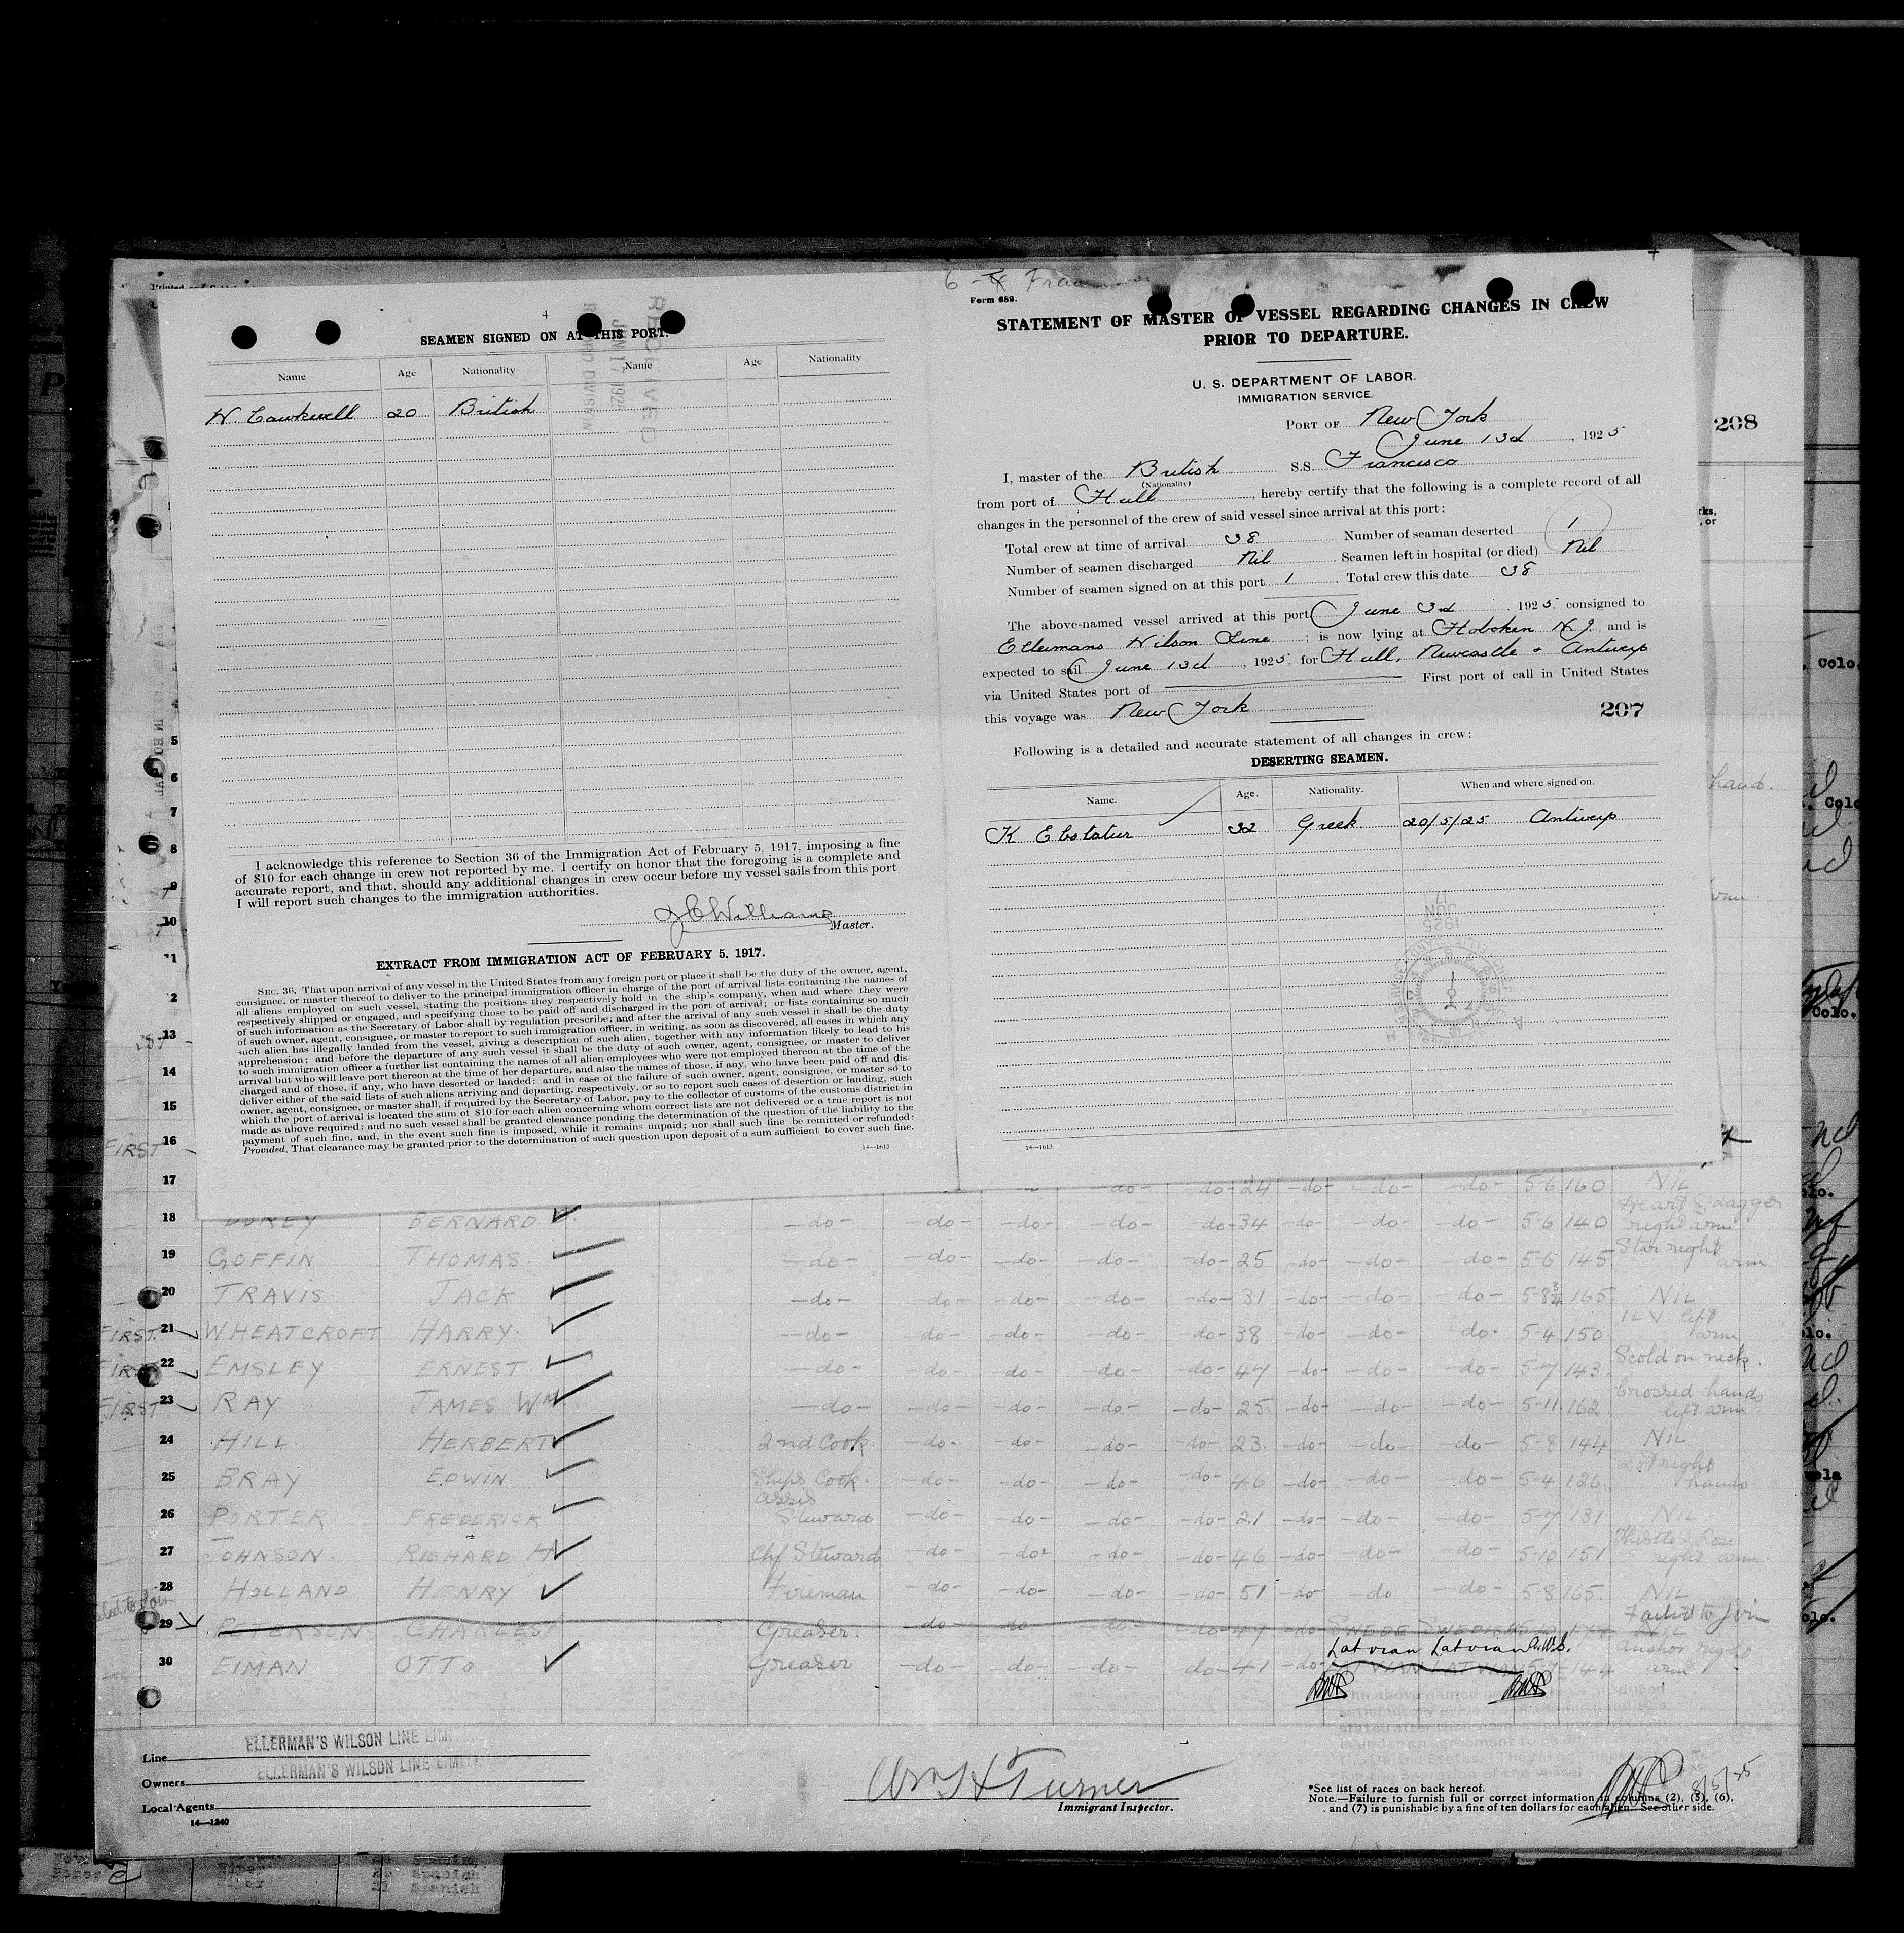 4
SEAMEN SIGNED ON AT THIS PORT.
Name Age Nationality Name Age Nationality
W. Cawkwell 20 British
RECEIVED
JUN 17 1925
RECORD DIVISION
I acknowledge this reference to Section 36 of the Immigration Act of February 5, 1917, imposing a fine
of $10 for each change in crew not reported by me. I certify on honor that the foregoing is a complete and
accurate report, and that, should any additional changes in crew occur before my vessel sails from this port
I will report such changes to the immigration authorities.
J C Williams
Master.
EXTRACT FROM IMMIGRATION ACT OF FEBRUARY 5, 1917.
SEC. 36. That upon arrival of any vessel in the United States from any foreign port or place it shall be the duty of the owner, agent,
consignee, or master thereof to deliver to the principal immigration officer in charge of the port of arrival lists containing the names of
all aliens employed on such vessel, stating the positions they respectively hold in the ship's company, when and where they were
respectively shipped or engaged, and specifying those to be paid off and discharged in the port of arrival; or lists containing so much
of such information as the Secretary of Labor shall by regulation prescribe; and after the arrival of any such vessel it shall be the duty
of such owner, agent, consignee, or master to report to such immigration officer, in writing, as soon as discovered, all cases in which any
such alien has illegally landed from the vessel, giving a description of such alien, together with any information likely to lead to his
apprehension; and before the departure of any such vessel it shall be the duty of such owner, agent, consignee, or master to deliver
to such immigration officer a further list containing the names of all alien employees who were not employed thereon at the time of the
arrival but who will leave port thereon at the time of her departure, and also the names of those, if any, who have been paid off and dis-
charged and of those, if any, who have deserted or landed; and in case of the failure of such owner, agent, consignee, or master so to
deliver either of the said lists of such aliens arriving and departing, respectively, or so to report such cases of desertion or landing, such
owner, agent, consignee, or master shall, if required by the Secretary of Labor, pay to the collector of customs of the customs district in
which the port of arrival is located the sum of $10 for each alien concerning whom correct lists are not delivered or a true report is not
made as above required; and no such vessel shall be granted clearance pending the determination of the question of the liability to the
payment of such fine, and, in the event such fine is imposed, while it remains unpaid; nor shall such fine be remitted or refunded:
Provided, That clearance may be granted prior to the determination of such question upon deposit of a sum sufficient to cover such fine.
14—1613
Form 689.
STATEMENT OF MASTER OF VESSEL REGARDING CHANGES IN CREW
PRIOR TO DEPARTURE.
U. S. DEPARTMENT OF LABOR.
IMMIGRATION SERVICE.
PORT OF New York
June 13d, 1925
I, master of the British S.S. Francisco
(Nationality)
from port of Hull, hereby certify that the following is a complete record of all
changes in the personnel of the crew of said vessel since arrival at this port:
Total crew at time of arrival 38 Number of seaman deserted 1
Number of seamen discharged Nil Seamen left in hospital (or died) Nil
Number of seamen signed on at this port 1 Total crew this date 38
The above-named vessel arrived at this port June 3d, 1925, consigned to
Ellermans Wilson Line; is now lying at Hoboken N J and is
expected to sail June 13d, 1925, for Hull, Newcastle + Antwerp
via United States port of First port of call in United States
this voyage was New York
207
Following is a detailed and accurate statement of all changes in crew:
DESERTING SEAMEN.
Name. Age. Nationality. When and where signed on.
K Ebstatur 32 Greek 20/5/25 Antwerp
14—1613
208
17 -do- -do- 24 -do- -do- -do- 5-6 160 NIL
18 BERNARD -do- -do- -do- -do- -do- 34 -do- -do- -do- 5-6 140 Heart & dagger right arm
19 GOFFIN THOMAS -do- -do- -do- -do- -do- 25 -do- -do- -do- 5-6 145 Star right arm
20 TRAVIS JACK -do- -do- -do- -do- -do- 31 -do- -do- -do- 5-8¾ 165 NIL
FIRST 21 WHEATCROFT HARRY -do- -do- -do- -do- -do- 38 -do- -do- do- 5-4 150 left arm
FIRST 22 EMSLEY ERNEST -do- -do- -do- -do- -do- 47 -do- -do- -do- 5-7 143 Scold on neck.
FIRST 23 RAY JAMES WM -do- -do- -do- -do- -do- 25 -do- -do- -do- 5-11 162 Crossed hands left arm
24 HILL HERBERT 2nd Cook. -do- -do- -do- -do- 23 -do- -do- -do- 5-8 144 NIL
25 BRAY EDWIN Ships Cook. -do- -do- -do- -do- 46 -do- -do- -do- 5-4 126 right hands
26 PORTER FREDERICK assis Steward -do- -do- -do- -do- 21 -do- -do- -do- 5-7 131 NIL
27 JOHNSON RICHARD H Chf Steward -do- -do- -do- -do- 46 -do- -do- -do- 5-10 151 Thistle & Rose right arm
28 HOLLAND HENRY Fireman -do- -do- -do- -do- 51 -do- -do -do- 5-8 165 NIL
29 PETERSON CHARLES Greaser. -do- -do -do- -do- 49 -do- SWEDE SWEDISH NIL Failed to Join
30 EIMAN OTTO Greaser -do- -do- -do- -do- 41 -do- Latvian Latvian 5-7½ 144 anchor right arm
Line ELLERMAN'S WILSON LINE LIM
Owners ELLERMAN'S WILSON LINE LIMIT
Local Agents
14—1240
Wm H Turner
Immigrant Inspector.
*See list of races on back hereof.
Note.—Failure to furnish full or correct information in columns (2), (5), (6),
and (7) is punishable by a fine of ten dollars for each alien. See other side.
Wiper Spanish
Wiper Spanish